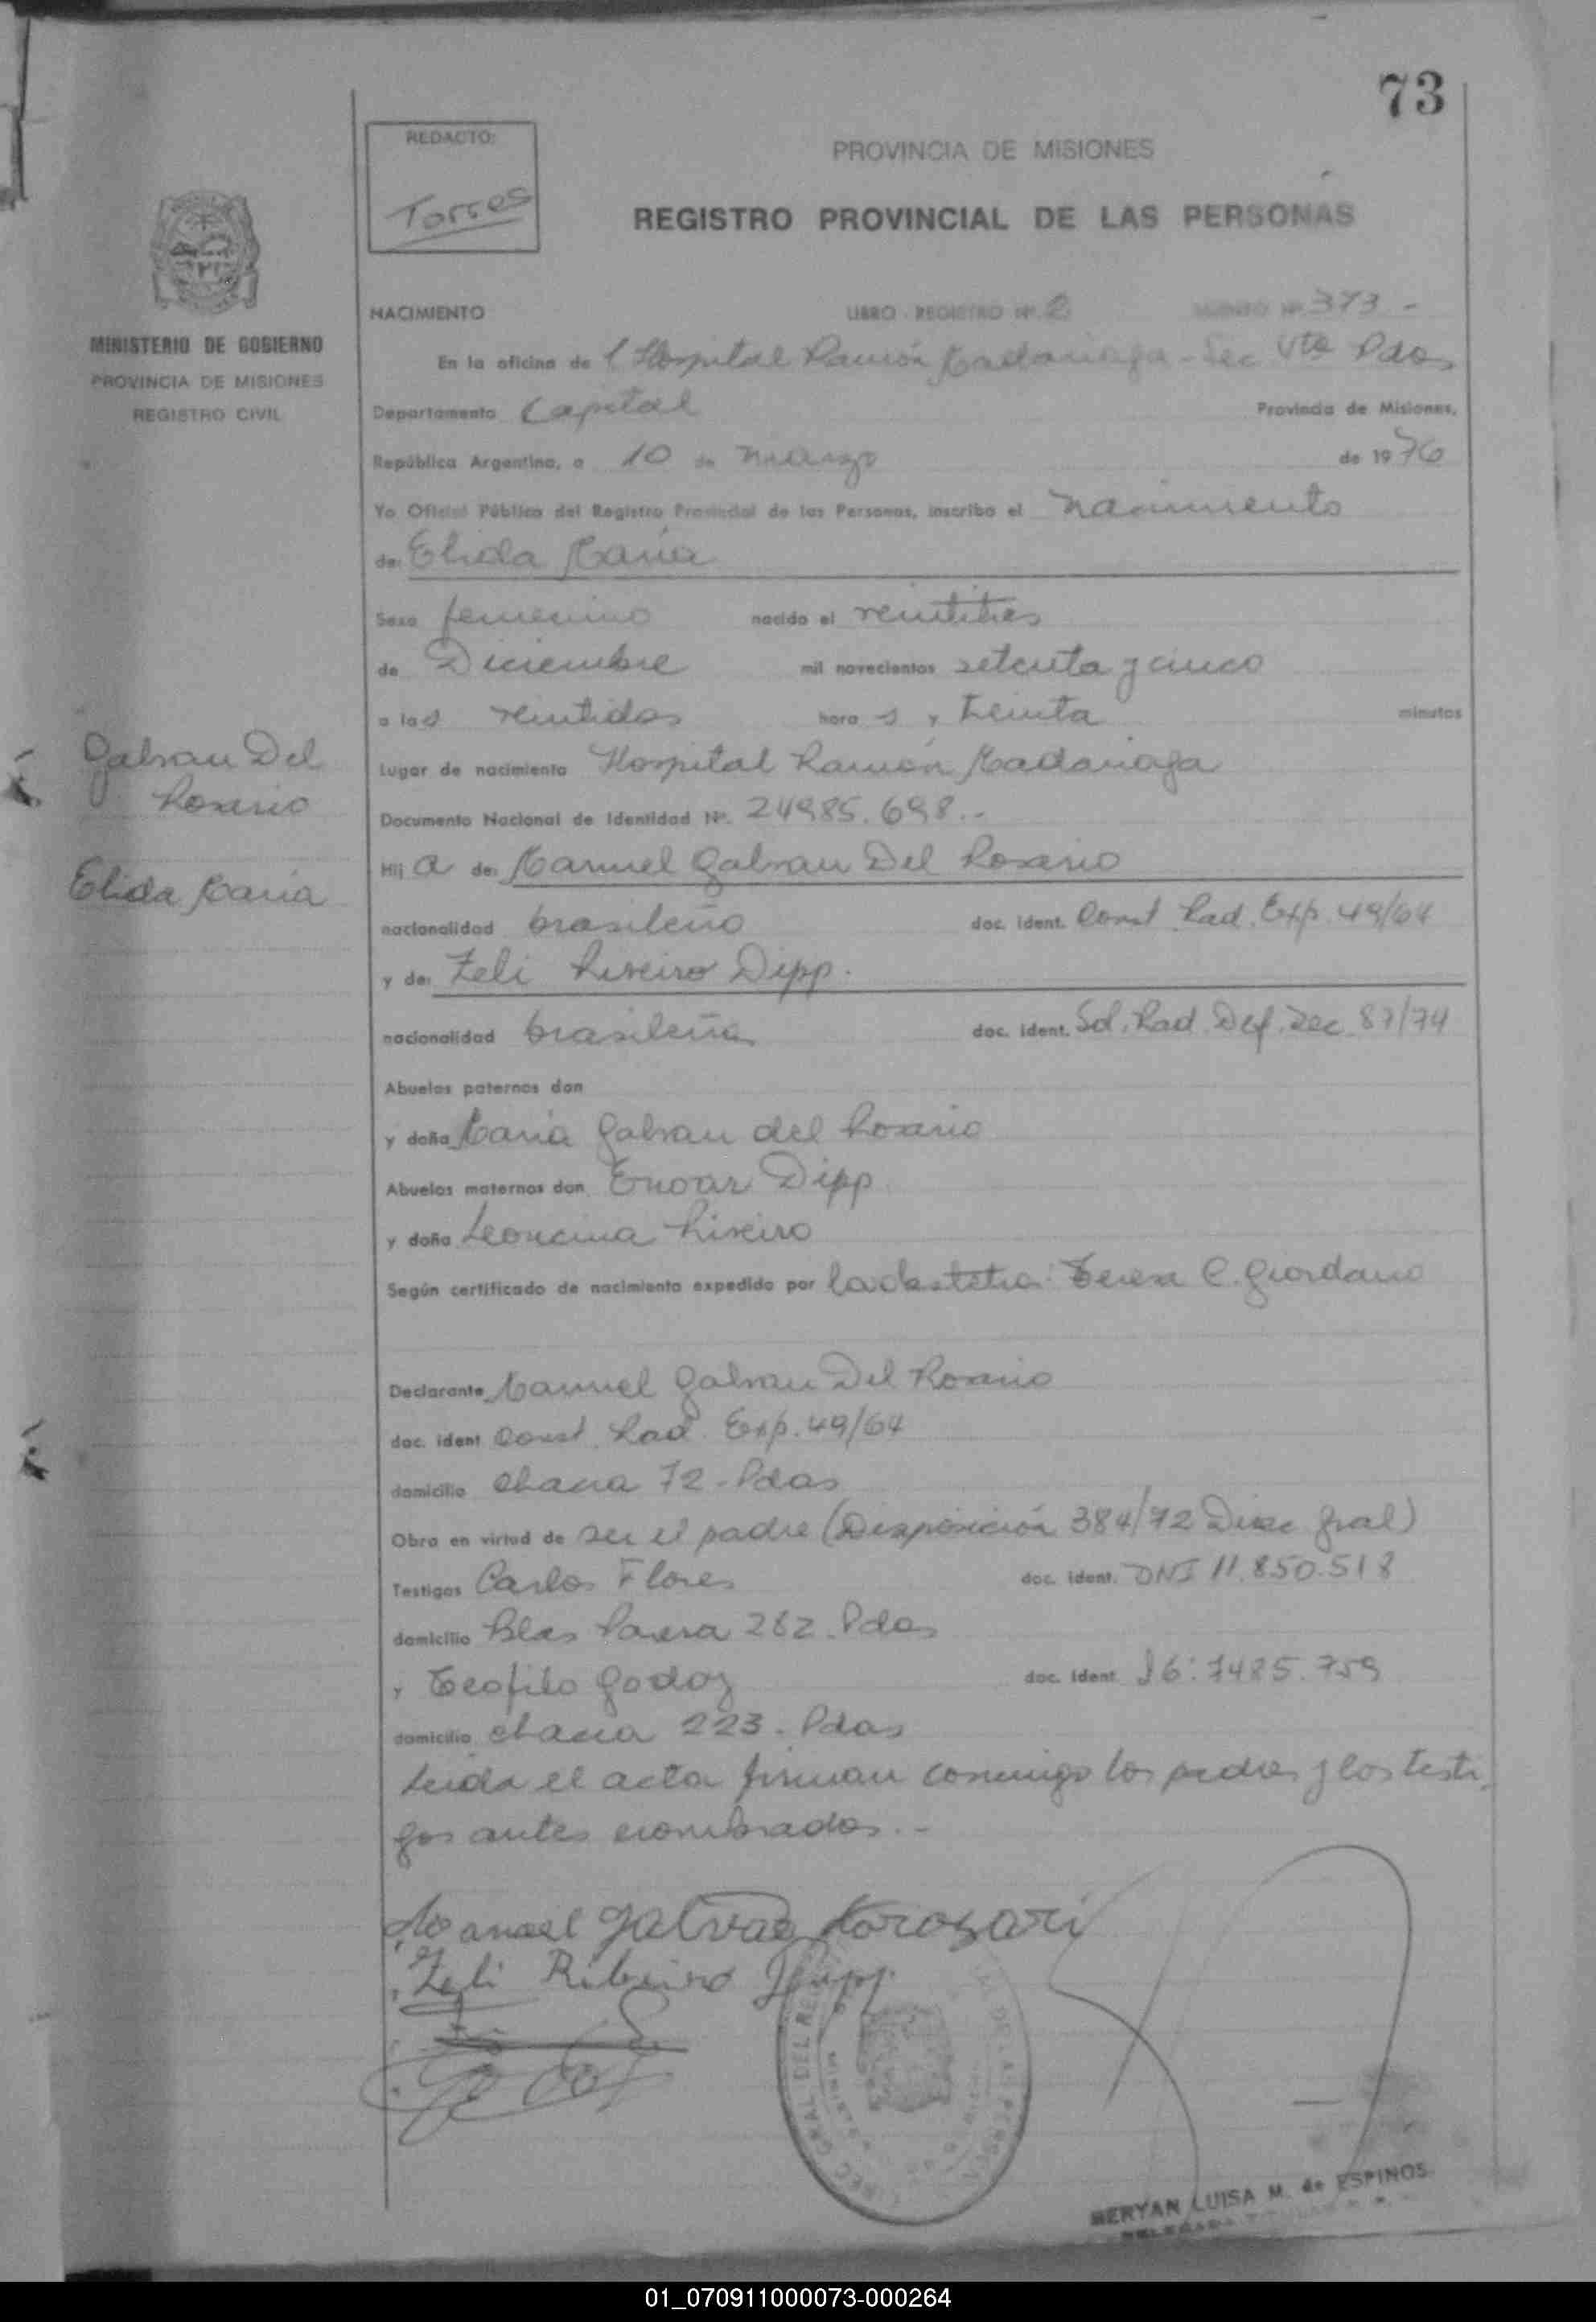 73
REDACTO:
Torres
PROVINCIA DE MISIONES
REGISTRO PROVINCIAL DE LAS PERSONAS
MINISTERIO DE GOBIERNO
PROVINCIA DE MISIONES
REGISTRO CIVIL
NACIMIENTO LIBRO - REGISTRO Nº 2 Nº 373 -
En la oficina de l Hospital Ramón Madariaga - Sec Vta Pdas
Departamento Capital Provincia de Misiones,
República Argentina, a 10 de marzo de 1976
Yo Oficial Público del Registro Provincial de las Personas, inscribo el nacimiento
de: Elida María
Sexo femenino nacido el veintitres
de Diciembre mil novecientos setenta y cinco
a las veintidos hora s y treinta minutos
Lugar de nacimiento Hospital Ramón Madariaga
Documento Nacional de Identidad Nº. 24985.698.-
Hij a de: Manuel Galvan Del Rosario
nacionalidad brasileño doc. ident. Const. Rad. Exp. 49/64
y de: Zeli Riveiro Dipp.
nacionalidad brasileña doc. ident. Sol. Rad. Def. Dec. 87/74
Abuelos paternos don
y doña María Galvan del Rosario
Abuelos maternos don Dipp
y doña Leoncina Riveiro
Según certificado de nacimiento expedido por la obstetra: Teresa C. Giordano
Declarante Manuel Galvan Del Rosario
doc. ident Const. Rad. Exp. 49/64
domicilio chacra 72 - Pdas
Obra en virtud de ser el padre (Disposición 384/72 Direc Gral)
Testigos Carlos Flores doc. ident. DNI 11.850.518
domicilio Blas Parera 282. Pdas
y Teofilo Godoy doc. ident. 7485.759
domicilio chacra 223. Pdas
Leida el acta firman conmigo los padres y los testi-
gos antes nombrados.-
Galvan Del
Rosario
Elida María
Manoel Galvao do rosari
Zeli Ribeiro Dipp.
MERYAN LUISA M. de ESPINOS
01_070911000073-000264